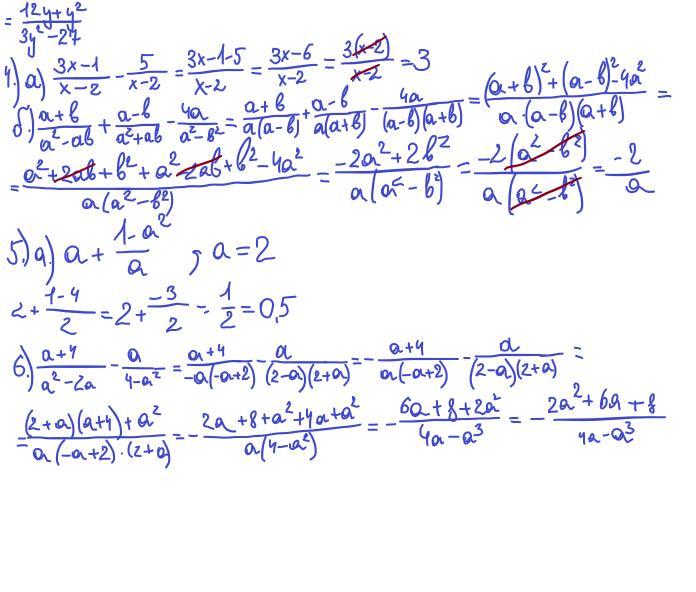 = (12y+y²)/(3y²-27)
4.) а) (3x-1)/(x-2) - 5/(x-2) = (3x-1-5)/(x-2) = (3x-6)/(x-2) = 3(x-2)/(x-2) = 3
б.) (a+b)/(a²-ab) + (a-b)/(a²+ab) - 4a/(a²-b²) = (a+b)/(a(a-b)) + (a-b)/(a(a+b)) - 4a/((a-b)(a+b)) = ((a+b)²+(a-b)²-4a²)/(a·(a-b)(a+b)) =
= (a²+2ab+b²+a²-2ab+b²-4a²)/(a(a²-b²)) = (-2a²+2b²)/(a(a²-b²)) = -2(a²-b²)/(a(a²-b²)) = -2/a
5.) а.) a + (1-a²)/a , a=2
2 + (1-4)/2 = 2 + -3/2 = 1/2 = 0,5
6.) (a+4)/(a²-2a) - a/(4-a²) = (a+4)/(-a(-a+2)) - a/((2-a)(2+a)) = - (a+4)/(a(-a+2)) - a/((2-a)(2+a)) =
= ((2+a)(a+4)+a²)/(a(-a+2)·(2+a)) = - (2a+8+a²+4a+a²)/(a(4-a²)) = - (6a+8+2a²)/(4a-a³) = - (2a²+6a+8)/(4a-a³)